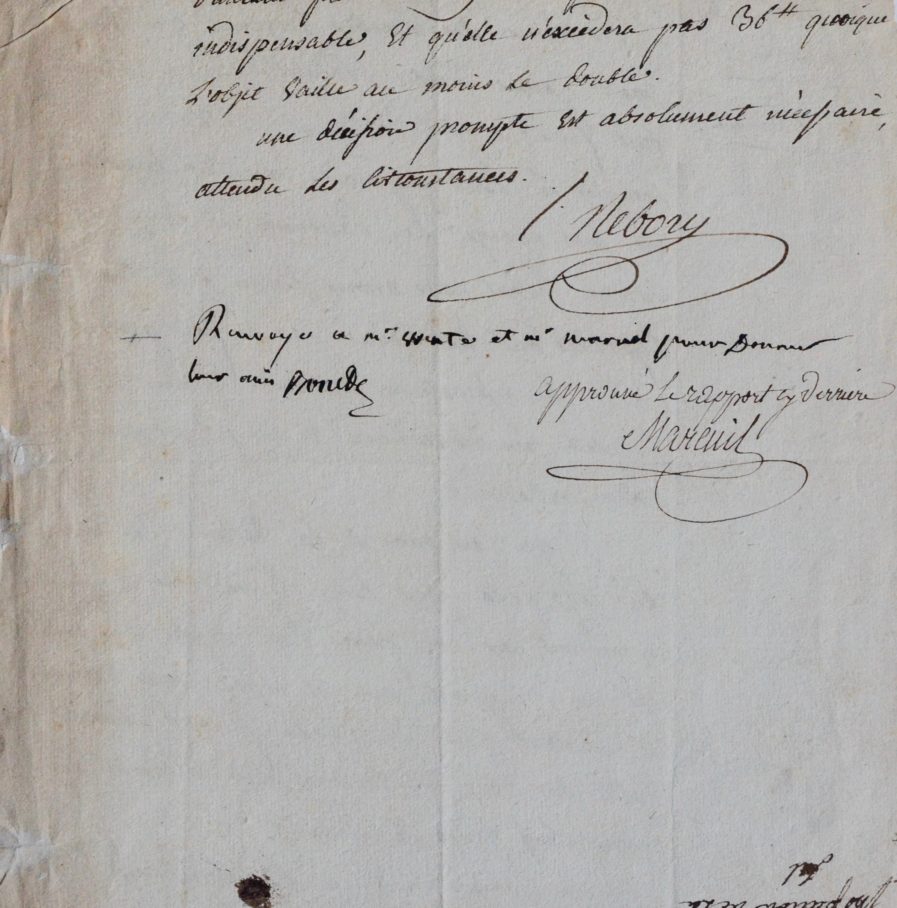 indispensable, Et qu'elle n'excèdera pas 36ᵗᵗ quoique
L'objet Vaille au moins Le double.
une décision prompte Est absolument nécessaire,
attendu Les Circonstances.
Nebory
Renvoyé a mr. et mr mareuil pour Donner
leur avis
approuvé Le rapport cy derriere
Mareuil